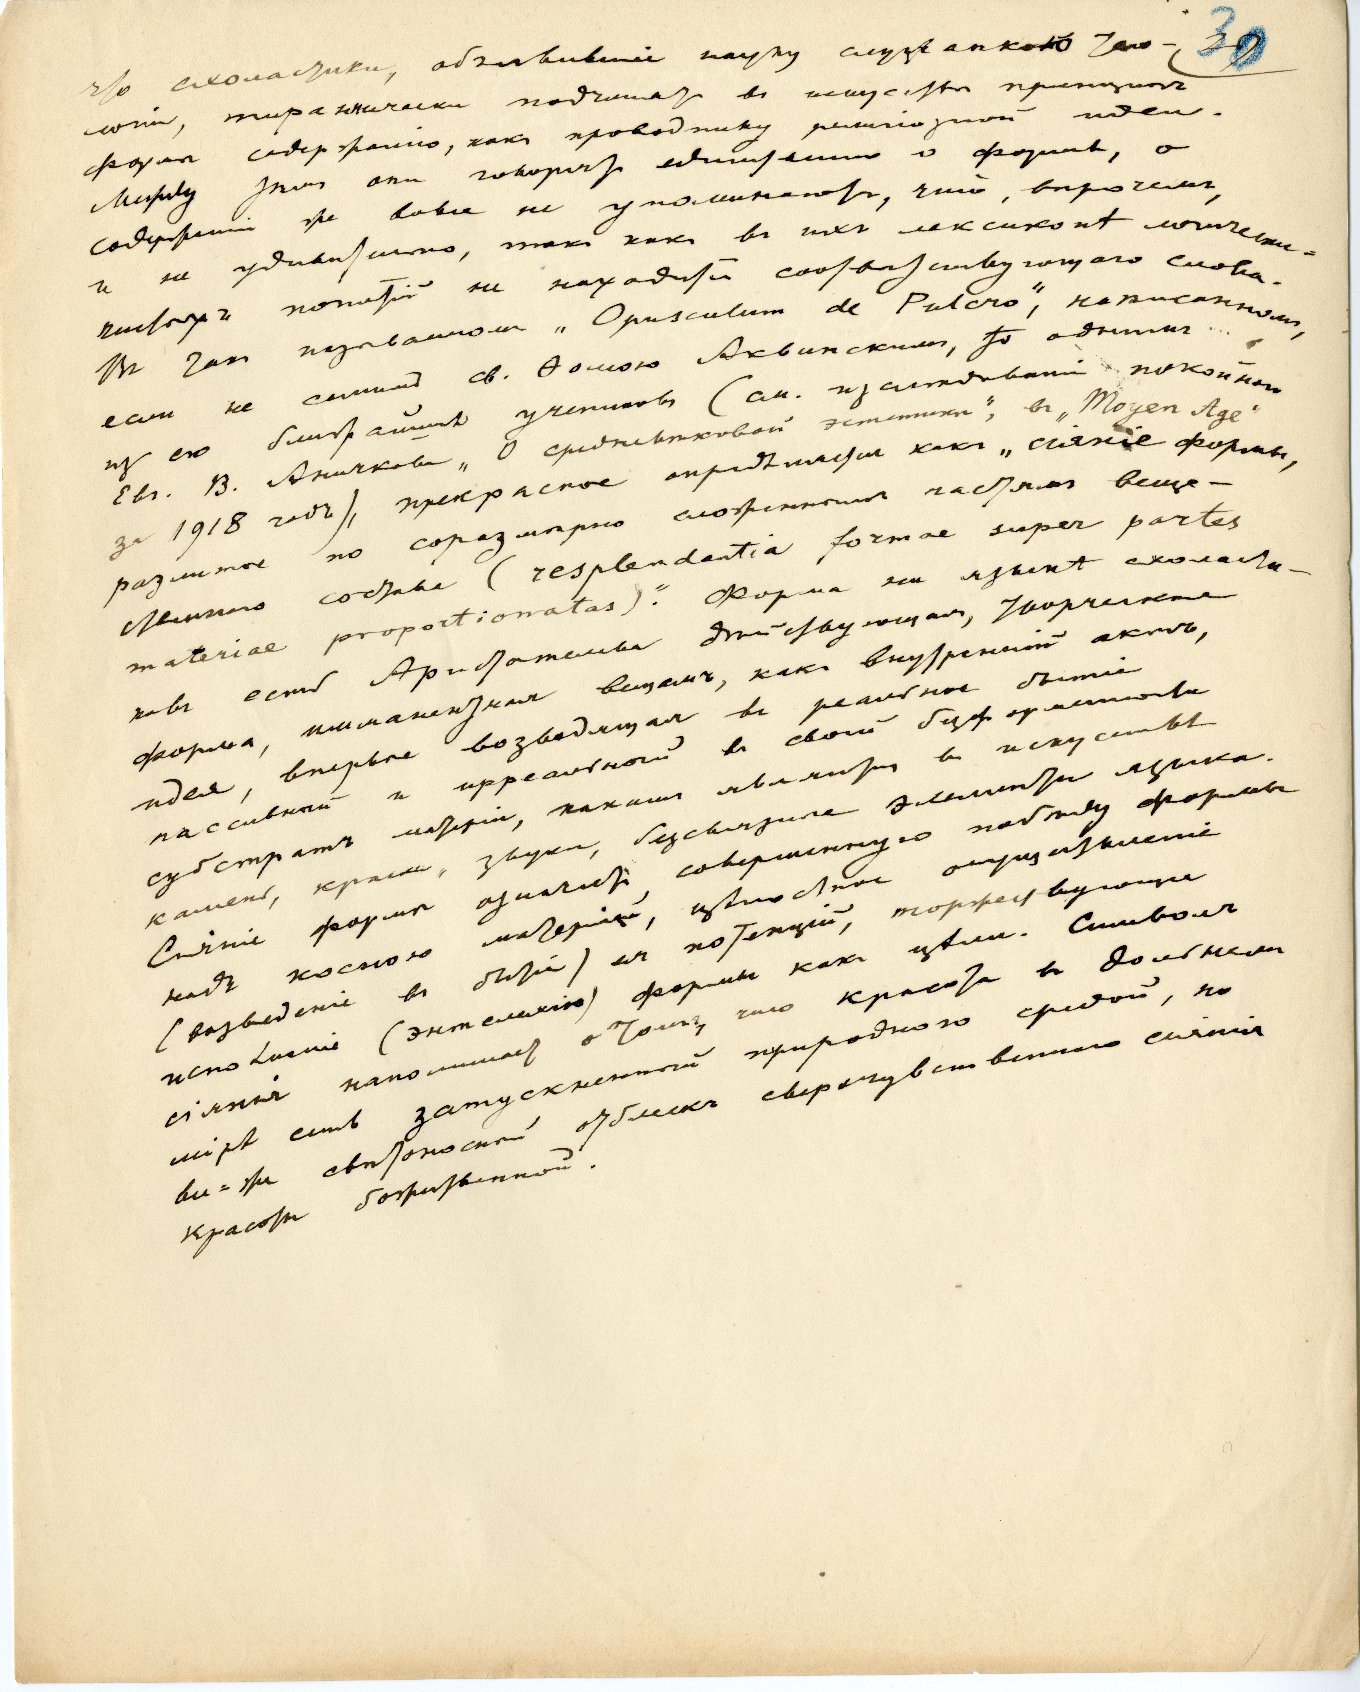 30
что схоластики, объявившие науку служанкою теο-
логіи, тиранически подчинятъ въ искусствѣ принципъ
формы содержанію, какъ проводнику религіозной идеи.
Между тѣмъ они говорятъ единственно о формѣ, о
содержаніи же вовсе не упоминаютъ, что, впрочемъ,
и не удивительно, такъ какъ въ ихъ лексиконѣ логически-
чистыхъ понятій не находится соотвѣтствующаго слова.
Въ такъ называемомъ „Opusculum de Pulcro“, написанномъ,
если не самимъ св. Ѳомою Аквинскимъ, то однимъ
изъ его ближайшихъ учениковъ (см. изслѣдованіе покойнаго
Евг. В. Аничкова „О средневѣковой эстетикѣ“, въ „Moyen Age“
за 1918 годъ), прекрасное опредѣляется какъ „сіяніе формы,
разлитое по соразмѣрно сложеннымъ частямъ веще-
ственнаго состава (resplendentia formae super partes
materiae proportionatas)“. Форма на языкѣ схоласти-
ковъ есть Аристотелева дѣйствующая, творческая
форма, имманентная вещамъ, какъ внутренній актъ,
идея, впервые возводящая въ реальное бытіе
пассивный и ирреальный въ своей безформенности
субстратъ матеріи, какими являются въ искусствѣ
камень, краски, звуки, безсвязные элементы языка.
Сіяніе формы означаетъ совершенную побѣду формы
надъ косною матеріей, цѣлостное осуществленіе
(возведеніе въ бытіе) ея потенцій, торжествующее
исполненіе (энтелехію) формы какъ цѣли. Символъ
сіянія напоминаетъ о томъ, что красота въ дольнемъ
мірѣ есть затускненный природною средой, но
все-же свѣтоносный отблескъ сверхчувственнаго сіянія
красоты божественной.